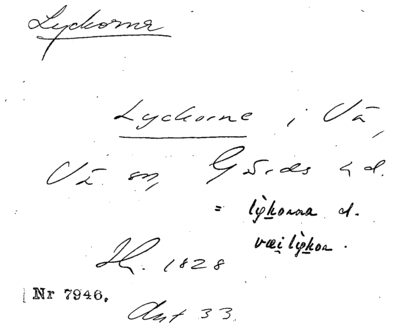 Lyckorna
Lyckorne i Vä,
Vä sn, Gärds hd.
= lỳkorna d.
væi lỳkor.
Hr. 1828
Nr 7946.
Ant 33.